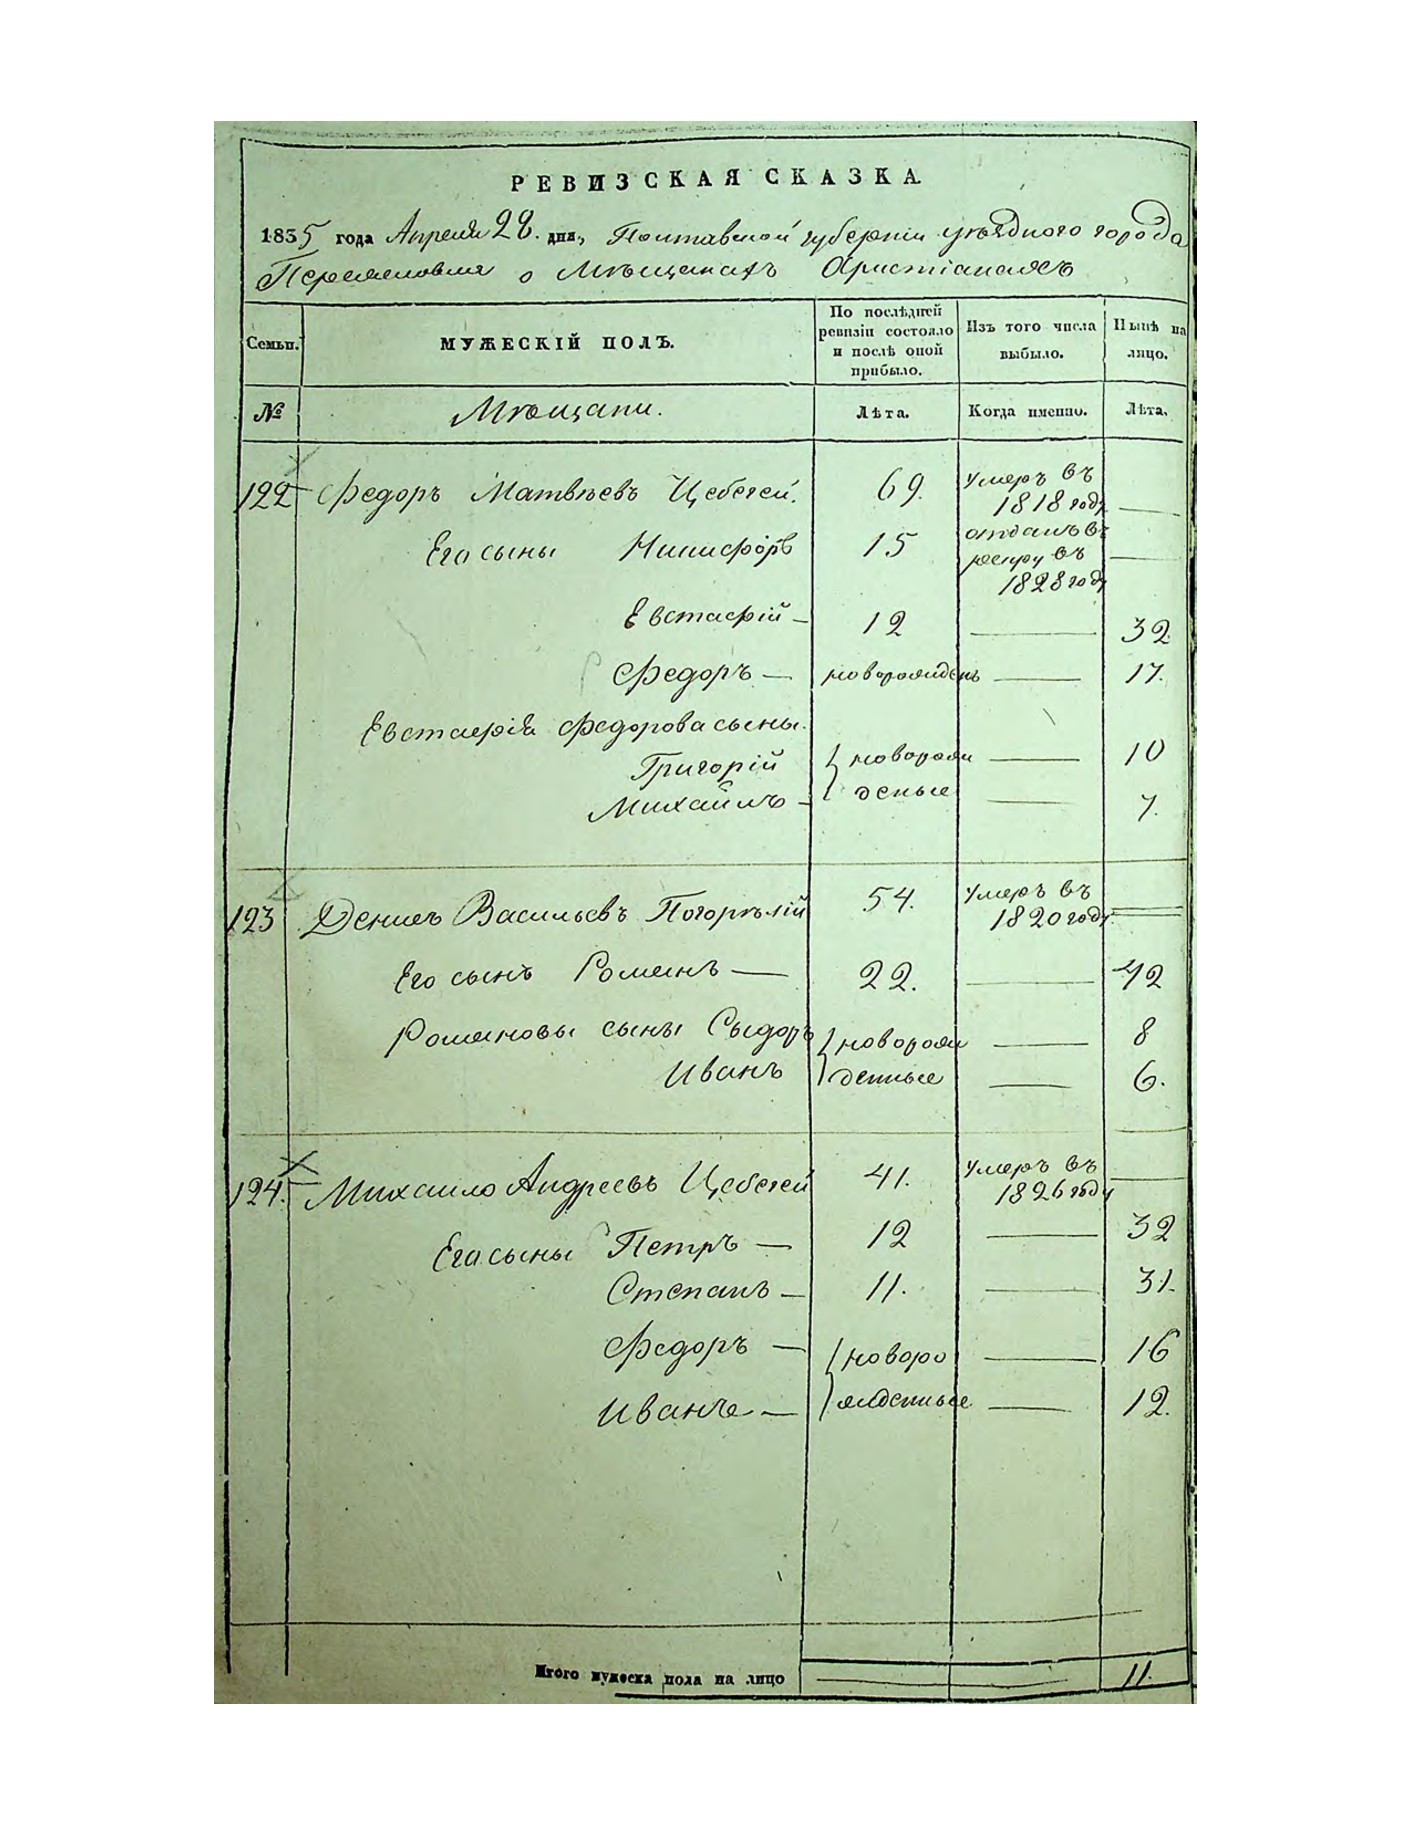 РЕВИЗСКАЯ СКАЗКА
1835 года Апреля 22. дня, Полтавской губернiи уѣзднаго города
Переяслова о Мѣщанахъ Христiанахъ
Семьи. МУЖЕСКIЙ ПОЛЪ. По послѣдней ревизiи состояло и послѣ оной прибыло. Изъ того числа выбыло. Нынѣ на лицо.
№ Мѣщани. Лѣта. Когда именно. Лѣта.
122 Федоръ Матвѣевъ Цебегей. 69. умеръ въ 1818 году —
Его сыны Никифоръ 15 отданъ въ рекру въ 1828 году —
Евстафiй — 12 — 32
Федоръ — новорожденъ — 17.
Евстафiя Федорова сыны.
Григорiй новорож — 10
Михайлъ — деные — 7.
123 Денисъ Васильевъ Погорѣлiй 54. умеръ въ 1820 году.
Его сынъ Романъ — 22. — 42
Романовы сыны Сыдоръ новорож — 8
Иванъ денные — 6.
124. Михайло Андреевъ Цебегей 41. умеръ въ 1826 году —
Его сыны Петръ — 12 — 32
Степанъ — 11. — 31.
Федоръ — новоро — 16
Иванъ — жденные — 12.
Итого мужеска пола на лицо — 11.